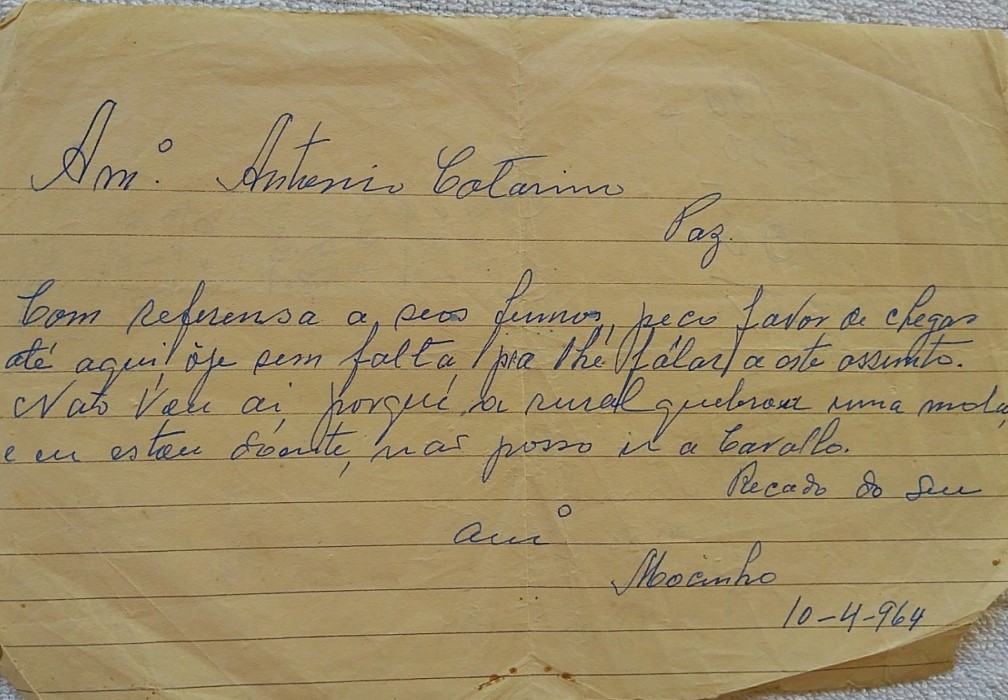 Am.º Antonio Catarino
Paz.
Com referensa a seos fumos, peco favor de chegar
até aqui ôje sem falta, pra lhé fálar a este assunto.
Não Vou ai porqué a rural quebrou uma mola,
e eu estou dôente, não posso ir a Cavallo.
Recado do Seu
amº
Mocinho
10-4-964